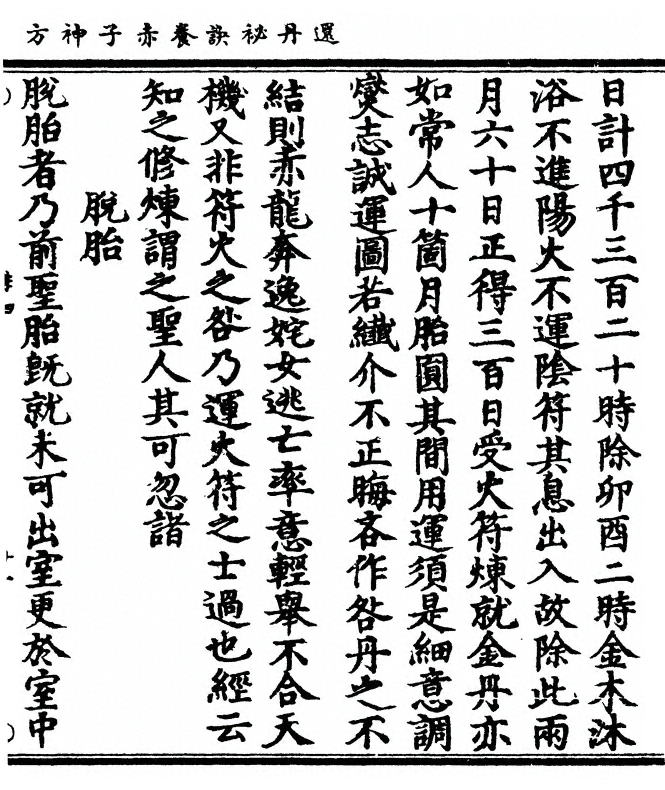 還丹祕訣養赤子神方
日計四千三百二十時除卯酉二時金木沐
浴不進陽火不運陰符其息出入故除此兩
月六十日正得三百日受火符煉就金丹亦
如常人十箇月胎圓其間用運須是細意調
燮志誠運圖若纖介不正晦吝作咎丹之不
結則赤龍奔逸姹女逃亡率意輕舉不合天
機又非符火之咎乃運火符之士過也經云
知之修煉謂之聖人其可忽諸
脫胎
脫胎者乃前聖胎旣就未可出室更於室中